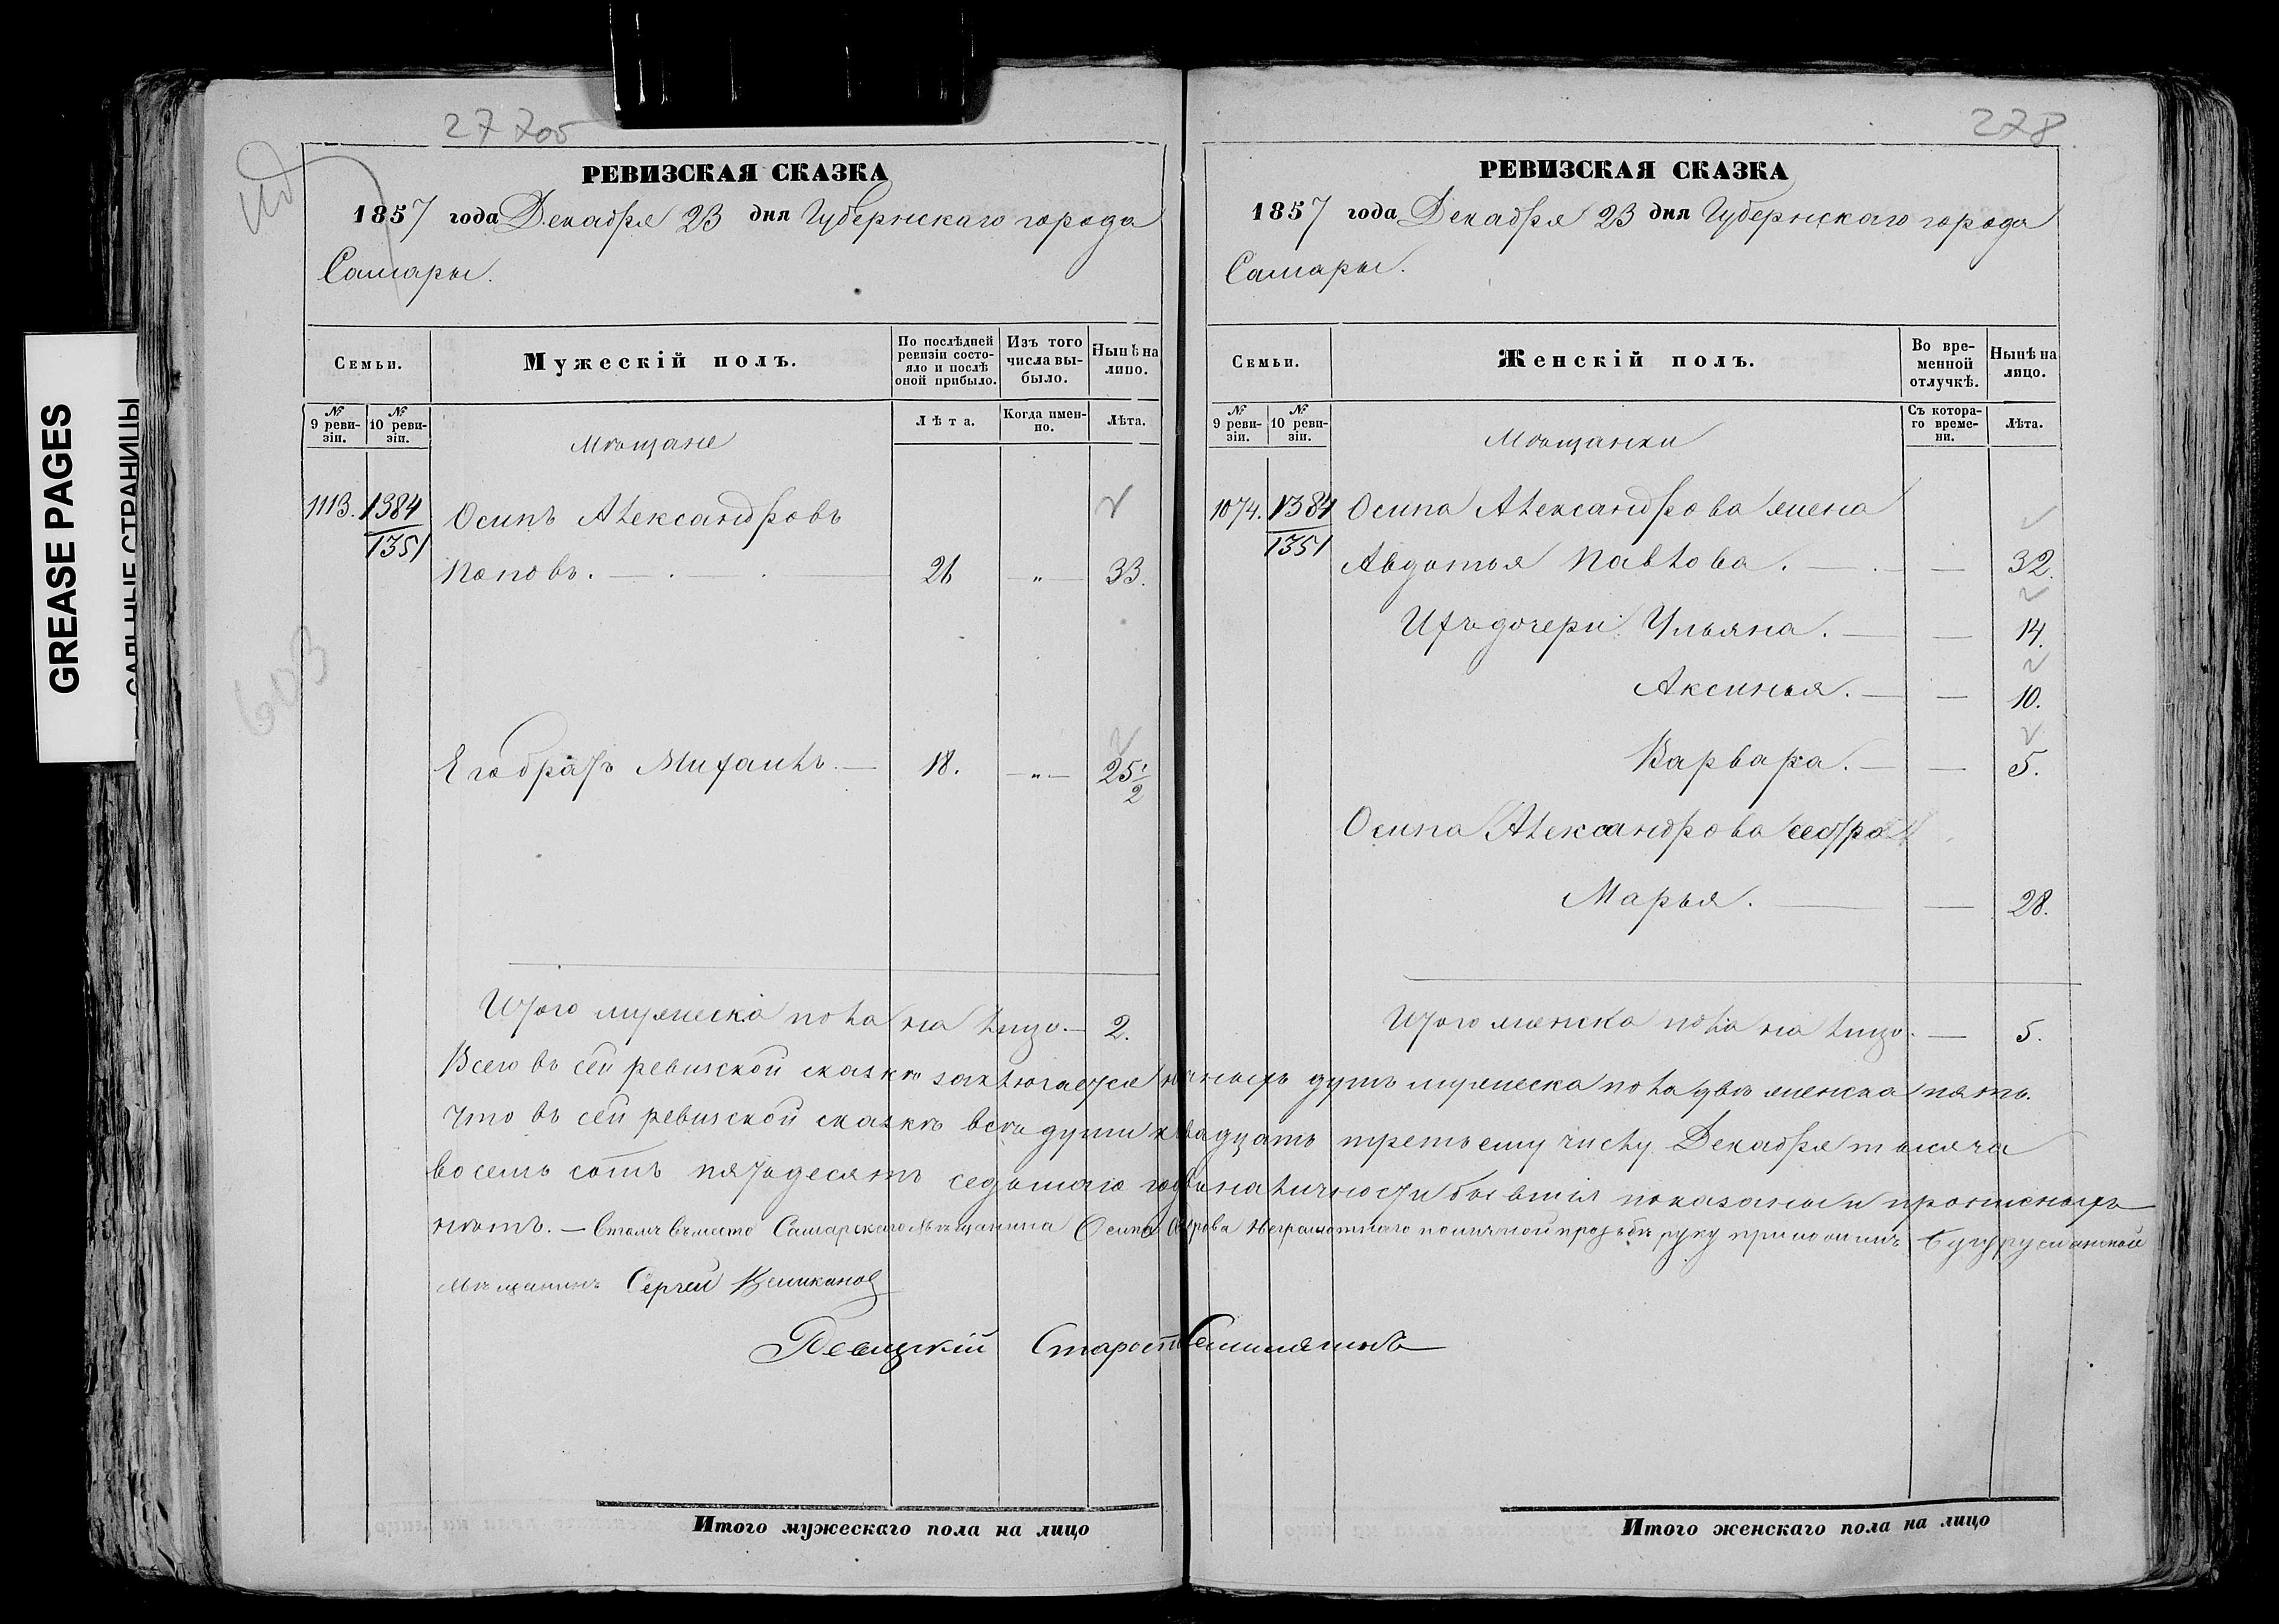 GREASE PAGES
САЛЬНЫЕ СТРАНИЦЫ
27 2 об
РЕВИЗСКАЯ СКАЗКА
1857 года Декабря 23 дня Губернскаго города
Самары.
Семьи.
Мужескій полъ.
По послѣдней ревизіи состояло и послѣ оной прибыло.
Изъ того числа выбыло.
Нынѣ на лицо.
№ 9 ревизіи.
№ 10 ревизіи.
Мѣщане
Лѣта.
Когда именно.
Лѣта.
1113. 1384 Осипъ Александровъ
1351
Поповъ. 26 — „ — 33.
603
Его братъ Михаилъ. — 18. — „ — 25 1/2
Итого мужеска пола на лицо. — 2.
278
РЕВИЗСКАЯ СКАЗКА
1857 года Декабря 23 дня Губернскаго города
Самары.
Семьи.
Женскій полъ.
Во временной отлучкѣ.
Нынѣ на лицо.
№ 9 ревизіи.
№ 10 ревизіи.
Мѣщанки
Съ котораго времени.
Лѣта.
1074. 1384 Осипа Александрова жена
1351
Авдотья Павлова. — — 32.
Ихъ дочери: Ульяна. — — 14.
Аксинья. — — 10.
Варвара. — — 5.
Осипа Александрова сестра
Марья. — — 28.
Итого женска пола на лицо. — 5.
Всего въ сей ревизской сказкѣ заключается наличныхъ душъ мужеска пола двѣ женска пять.
Что въ сей ревизской сказкѣ всѣ души къ двадцать третьему числу Декабря тысяча
восемь сотъ пятьдесятъ седьмаго года въ наличности бывшія показаны и прописныхъ
нѣтъ. — Въ томъ вмѣсто Самарскаго Мѣщанина Осипа неграмотнаго по личной прозьбѣ руку приложилъ Бугурусланской
мѣщанинъ Сергей Великанов
Мещцкій Староста
Итого мужескаго пола на лицо
Итого женскаго пола на лицо